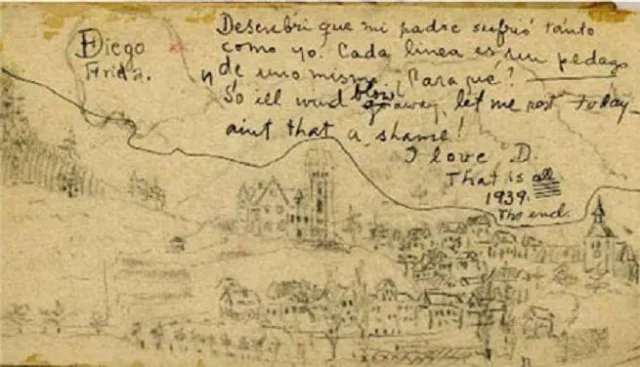 Diego
Frida.
Descubri que mi padre sufrió tanto
como yo. Cada linea es un pedazo
de uno mismo ¿Para qué?
So ill wind blow away, let me rest today
aint that a shame!
I love D.
That is all
1939.
The end.